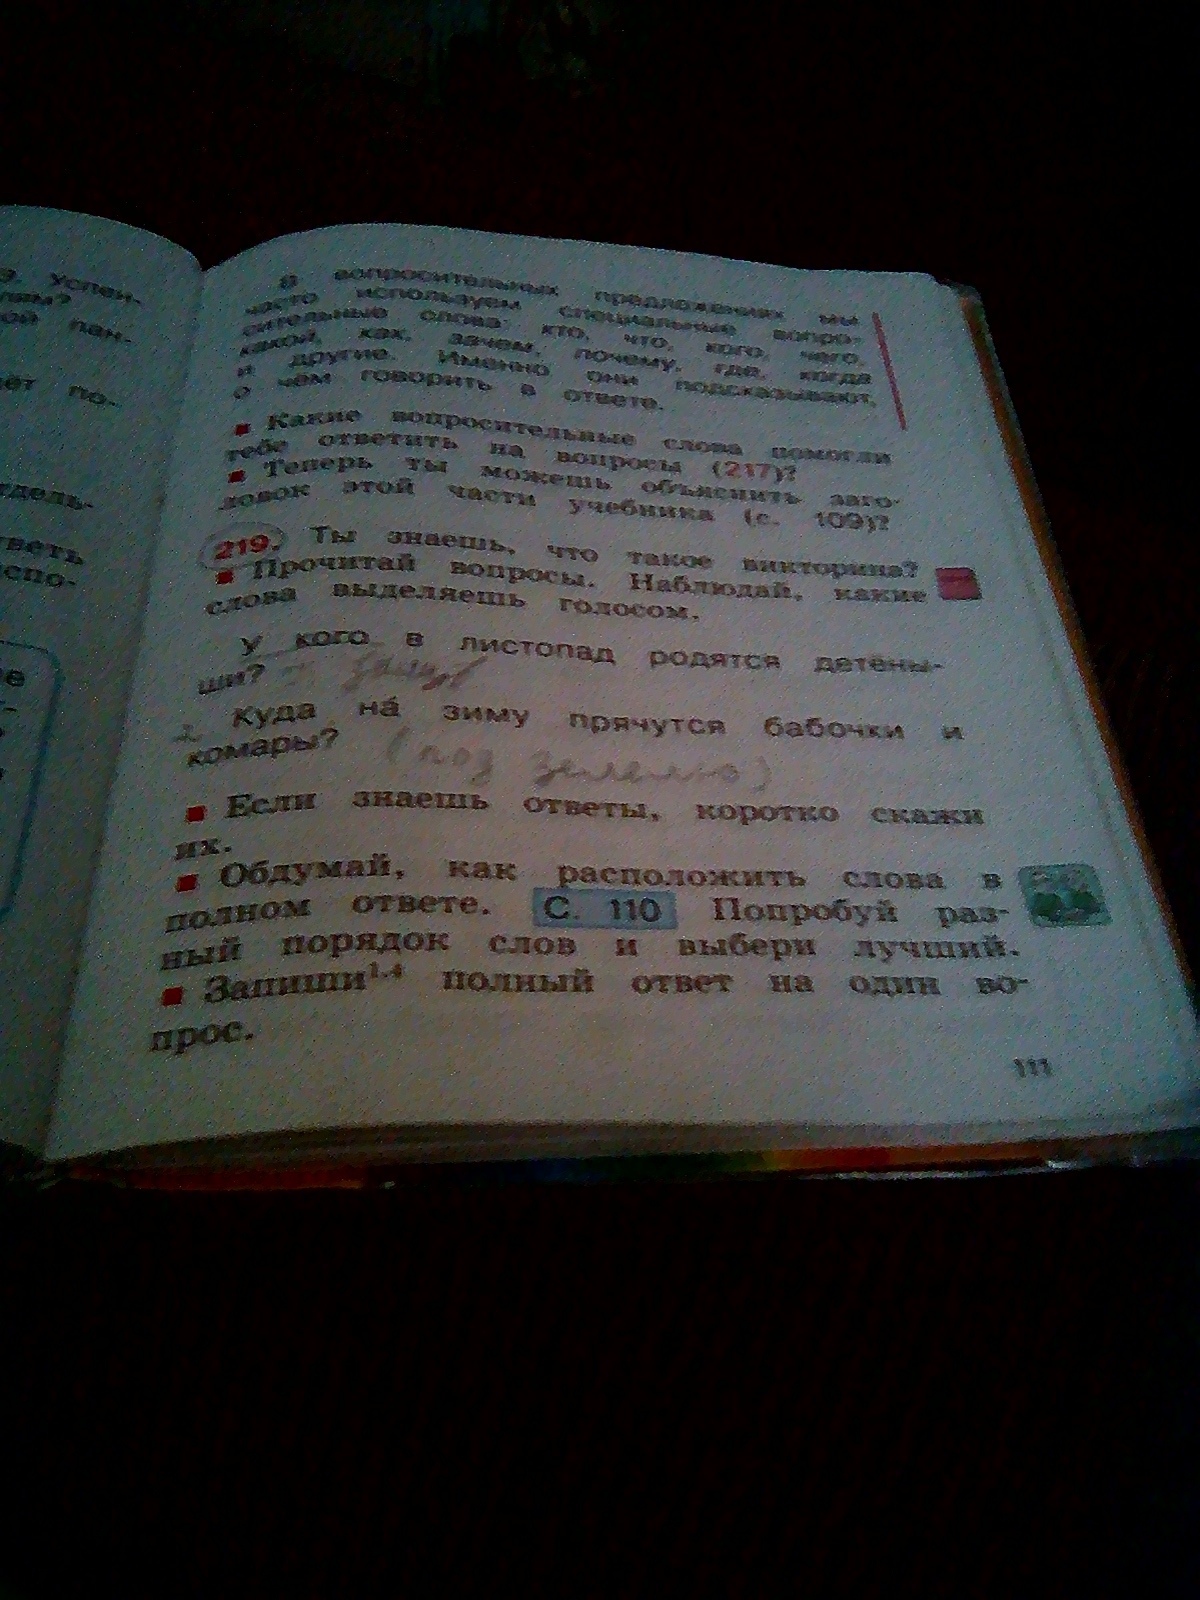 9. Успен-
лям?
ой пан-
ёт по-
тдель-
тветь
испо-
е
т-
В вопросительных предложениях мы
часто используем специальные вопро-
сительные слова: кто, что, кого, чего,
какой, как, зачем, почему, где, когда
и другие. Именно они подсказывают,
о чём говорить в ответе.
Какие вопросительные слова помогли
тебе ответить на вопросы (217)?
Теперь ты можешь объяснить заго-
ловок этой части учебника (с. 109)?
219. Ты знаешь, что такое викторина?
Прочитай вопросы. Наблюдай, какие
слова выделяешь голосом.
У кого в листопад родятся детёны-
ши?
2 Куда на́ зиму прячутся бабочки и
комары? (под
Если знаешь ответы, коротко скажи
их.
Обдумай, как расположить слова в
полном ответе. С. 110 Попробуй раз-
ный порядок слов и выбери лучший.
Запиши1,4 полный ответ на один во-
прос.
111